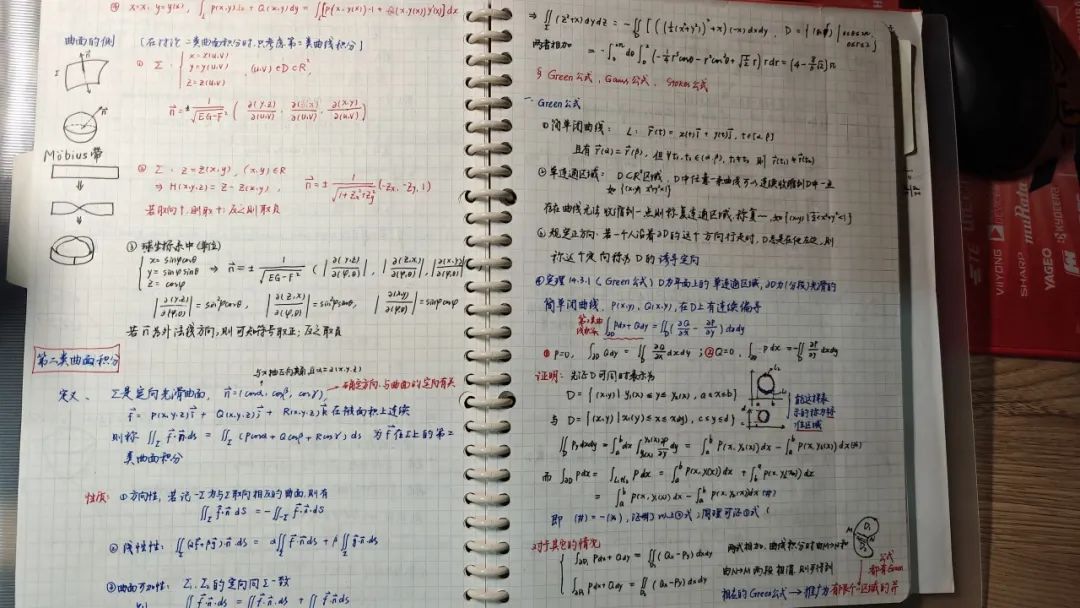 ④ x=x, y=y(x), ∫_L P(x,y)dx + Q(x,y)dy = ∫[P(x,y(x))·1 + Q(x,y(x))y'(x)]dx
曲面的侧 [在讨论二类曲面积分时,只考虑第二类曲线积分]
① Σ: { x=x(u,v) y=y(u,v) z=z(u,v) , (u,v)∈D⊂R²,
n = ± 1/√(EG-F²) ( ∂(y,z)/∂(u,v), ∂(z,x)/∂(u,v), ∂(x,y)/∂(u,v) )
Möbius带
② Σ: z=z(x,y), (x,y)∈R
⇒ H(x,y,z) = z - z(x,y), n = ± 1/√(1+Zx²+Zy²) (-Zx, -Zy, 1)
若取向上,则取+;反之则取负
③ 球坐标系中(单位)
{ x=sinφcosθ y=sinφsinθ z=cosφ ⇒ n = ± 1/√(EG-F²) ( |∂(y,z)/∂(φ,θ)|, |∂(z,x)/∂(φ,θ)|, |∂(x,y)/∂(φ,θ)| )
|∂(y,z)/∂(φ,θ)| = sin²φcosθ, |∂(z,x)/∂(φ,θ)| = sin²φsinθ, |∂(x,y)/∂(φ,θ)| = sinφcosφ
若 n 为外法线方向,则可知符号取正;反之取负
第二类曲面积分
定义、 Σ是定向光滑曲面, n=(cosα, cosβ, cosγ),
→确定方向,与曲面的定向有关
f = P(x,y,z)i + Q(x,y,z)j + R(x,y,z)k 在
上连续
则称 ∬_Σ f·n ds = ∬_Σ (Pcosα + Qcosβ + Rcosγ) ds 为 f 在Σ上的第二
类曲面积分
性质: ①方向性, 若记 -Σ 为与Σ取向相反的曲面,则有
∬_Σ f·n ds = -∬_-Σ f·n ds
② 线性性: ∬_Σ (αf+βg)·n ds = α∬_Σ f·n ds + β∬_Σ g·n ds
③曲面可加性: Σ₁, Σ₂ 的定向同Σ一致
∬ f·n ds = ∬ f·n ds + ∬ f·n ds
⇒ ∬_Σ (z²+x) dydz = -∬_D [((½(x²+y²))²+x)(-x)] dxdy, D=
两者相加 = -∫₀^2π dθ ∫₀²
§ Green公式, Gauss公式, Stokes公式
一. Green公式
① 简单闭曲线: L: r(t) = x(t)i + y(t)j, t∈[α,β]
且有 r(α)=r(β), 但 ∀t₁,t₂∈(α,β), t₁≠t₂ 则 r(t₁)≠r(t₂)
② 单连通区域: D⊂R²区域, D中任意一条曲线可以连续收缩到D中一点
如 {(x,y)| x²+y²<1}
存在曲线无法收缩到一点则称复连通区域,
③ 规定正方向: 若一个人沿着∂D的这个方向行走时, D总是在他左边, 则
称这个定向称为D的诱导定向
④ 定理14.3.1 (Green公式) D为平面上的单连通区域, ∂D为(分段)光滑的
简单闭曲线, P(x,y), Q(x,y), 在D上有连续偏导
第二类曲线积分 ∫_∂D Pdx+Qdy = ∬_D (∂Q/∂x - ∂P/∂y) dxdy
① P=0, ∫_∂D Qdy = ∬_D ∂Q/∂x dxdy ; ② Q=0, ∫_∂D P dx = -∬_D ∂P/∂y dxdy
证明: 先证D可同时表示为
D={(x,y)| y₁(x)≤y≤y₂(x), a≤x≤b}
与 D={(x,y)| x₁(y)≤x≤x₂(y), c≤y≤d}
能这样表示的称为标准区域
∬_D Py dxdy = ∫_a^b dx ∫_{y₁(x)}^{y₂(x)} ∂P/∂y dy = ∫_a^b P(x,y₂(x))dx - ∫_a^b P(x,y₁(x))dx (*)
而 ∫_∂D Pdx = ∫ P dx = ∫_a^b P(x,y₁(x))dx + ∫_b^a P(x,y₂(x))dx
= ∫_a^b P(x,y₁(x))dx - ∫_a^b P(x,y₂(x))dx (#)
即 (#) = -(*), 证明了以上②式; 同理可证①式
对于其它的情况
{ ∫_∂D₁ Pdx+Qdy = ∬_D₁ (Qx-Py)dxdy
∫_∂D₂ Pdx+Qdy = ∬_D₂ (Qx-Py)dxdy
两式相加, 曲线积分时由M→N和
由N→M两段相消, 则可得到
相应的Green公式 → 推广为有限个区域的并
VIIYONG
SHARP
muRata
YAGEO
KYOCERA